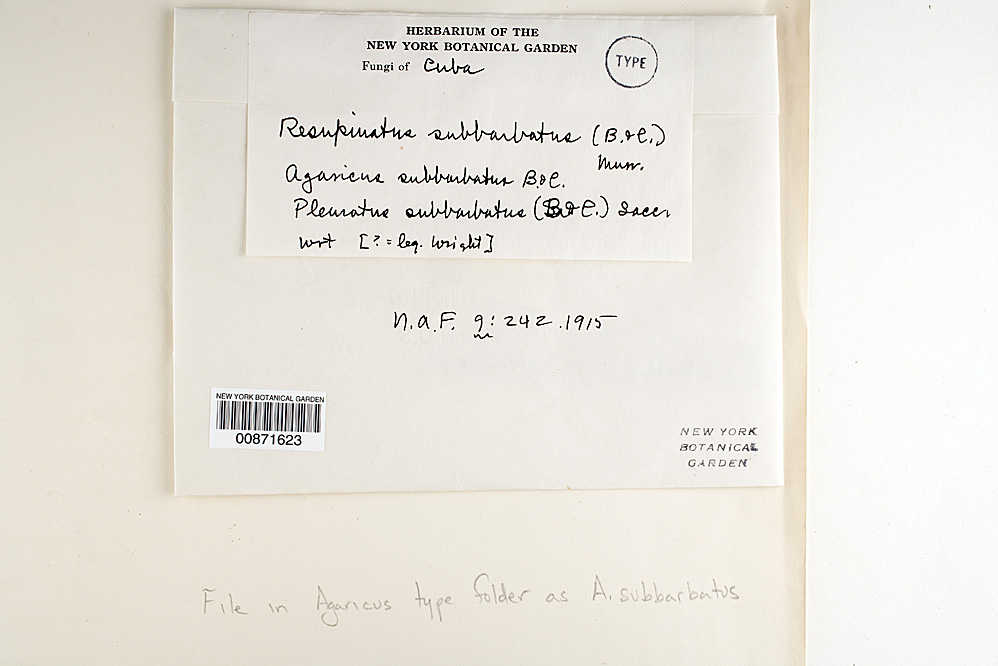 HERBARIUM OF THE
NEW YORK BOTANICAL GARDEN
Fungi of Cuba
TYPE
Resupinatus subbarbatus (B.&C.)
Murr.
Agaricus subbarbatus B.&C.
Pleurotus subbarbatus (B.&C.) Sacc.
Wrt [? = leg. Wright]
N.A.F. 9: 242. 1915
NEW YORK BOTANICAL GARDEN
00871623
NEW YORK
BOTANICAL
GARDEN
File in Agaricus type folder as A. subbarbatus